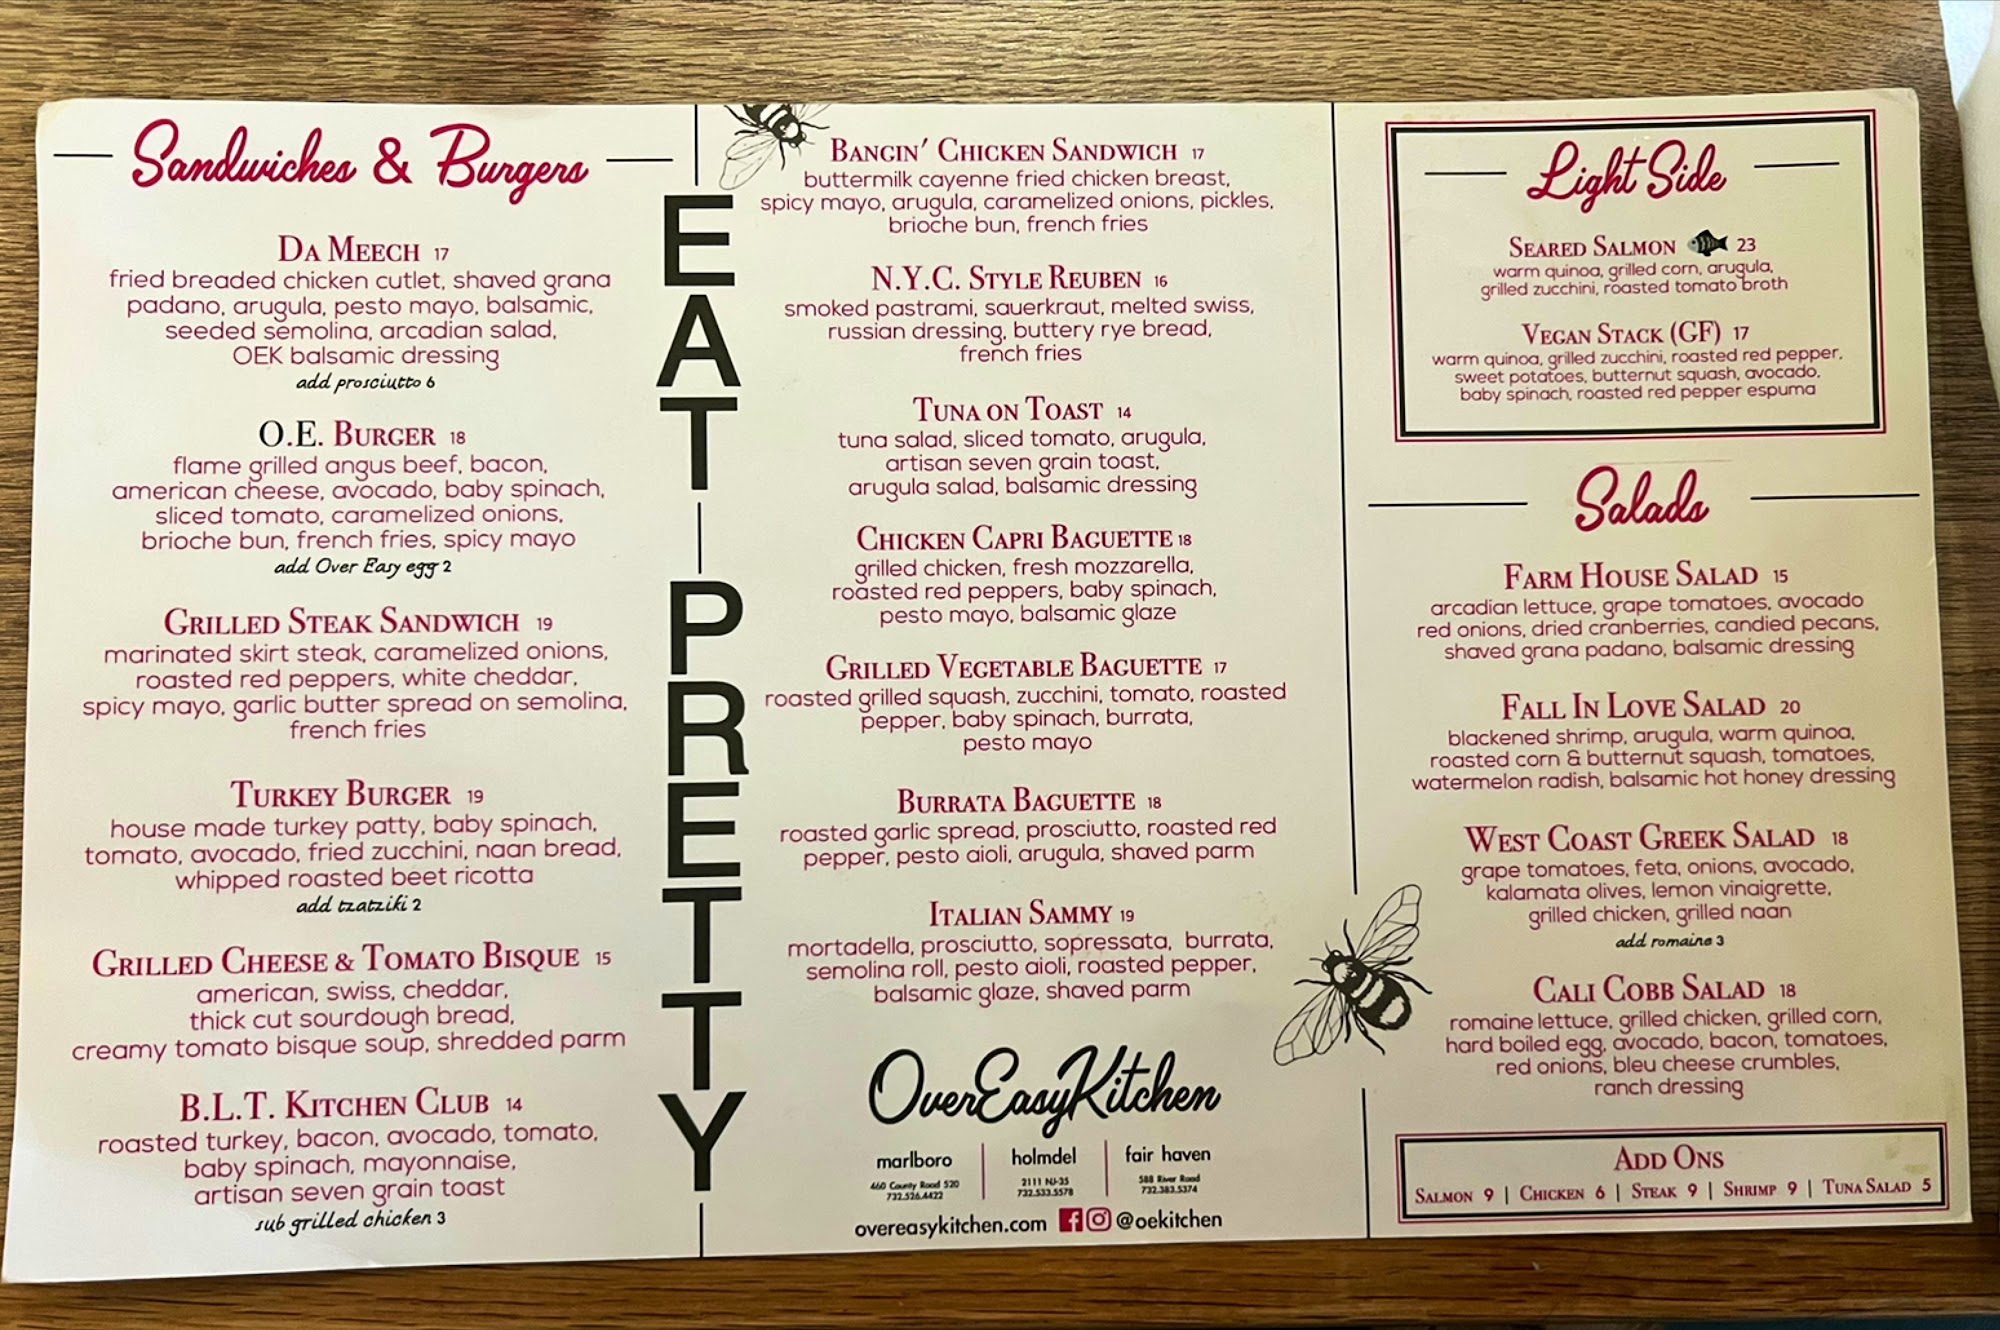 Sandwiches & Burgers
DA MEECH 17
fried breaded chicken cutlet, shaved grana
padano, arugula, pesto mayo, balsamic,
seeded semolina, arcadian salad,
OEK balsamic dressing
add prosciutto 6
O.E. BURGER 18
flame grilled angus beef, bacon,
american cheese, avocado, baby spinach,
sliced tomato, caramelized onions,
brioche bun, french fries, spicy mayo
add Over Easy egg 2
GRILLED STEAK SANDWICH 19
marinated skirt steak, caramelized onions,
roasted red peppers, white cheddar,
spicy mayo, garlic butter spread on semolina,
french fries
TURKEY BURGER 19
house made turkey patty, baby spinach,
tomato, avocado, fried zucchini, naan bread,
whipped roasted beet ricotta
add tzatziki 2
GRILLED CHEESE & TOMATO BISQUE 15
american, swiss, cheddar,
thick cut sourdough bread,
creamy tomato bisque soup, shredded parm
B.L.T. KITCHEN CLUB 14
roasted turkey, bacon, avocado, tomato,
baby spinach, mayonnaise,
artisan seven grain toast
sub grilled chicken 3
EAT PRETTY
BANGIN' CHICKEN SANDWICH 17
buttermilk cayenne fried chicken breast,
spicy mayo, arugula, caramelized onions, pickles,
brioche bun, french fries
N.Y.C. STYLE REUBEN 16
smoked pastrami, sauerkraut, melted swiss,
russian dressing, buttery rye bread,
french fries
TUNA ON TOAST 14
tuna salad, sliced tomato, arugula,
artisan seven grain toast,
arugula salad, balsamic dressing
CHICKEN CAPRI BAGUETTE 18
grilled chicken, fresh mozzarella,
roasted red peppers, baby spinach,
pesto mayo, balsamic glaze
GRILLED VEGETABLE BAGUETTE 17
roasted grilled squash, zucchini, tomato, roasted
pepper, baby spinach, burrata,
pesto mayo
BURRATA BAGUETTE 18
roasted garlic spread, prosciutto, roasted red
pepper, pesto aioli, arugula, shaved parm
ITALIAN SAMMY 19
mortadella, prosciutto, sopressata, burrata,
semolina roll, pesto aioli, roasted pepper,
balsamic glaze, shaved parm
OverEasyKitchen
marlboro | holmdel | fair haven
460 County Road 520 2111 NJ-35 588 River Road
732.526.4422 732.533.5578 732.383.5374
overeasykitchen.com @oekitchen
Light Side
SEARED SALMON 23
warm quinoa, grilled corn, arugula,
grilled zucchini, roasted tomato broth
VEGAN STACK (GF) 17
warm quinoa, grilled zucchini, roasted red pepper,
sweet potatoes, butternut squash, avocado,
baby spinach, roasted red pepper espuma
Salads
FARM HOUSE SALAD 15
arcadian lettuce, grape tomatoes, avocado
red onions, dried cranberries, candied pecans,
shaved grana padano, balsamic dressing
FALL IN LOVE SALAD 20
blackened shrimp, arugula, warm quinoa,
roasted corn & butternut squash, tomatoes,
watermelon radish, balsamic hot honey dressing
WEST COAST GREEK SALAD 18
grape tomatoes, feta, onions, avocado,
kalamata olives, lemon vinaigrette,
grilled chicken, grilled naan
add romaine 3
CALI COBB SALAD 18
romaine lettuce, grilled chicken, grilled corn,
hard boiled egg, avocado, bacon, tomatoes,
red onions, bleu cheese crumbles,
ranch dressing
ADD ONS
SALMON 9 | CHICKEN 6 | STEAK 9 | SHRIMP 9 | TUNA SALAD 5